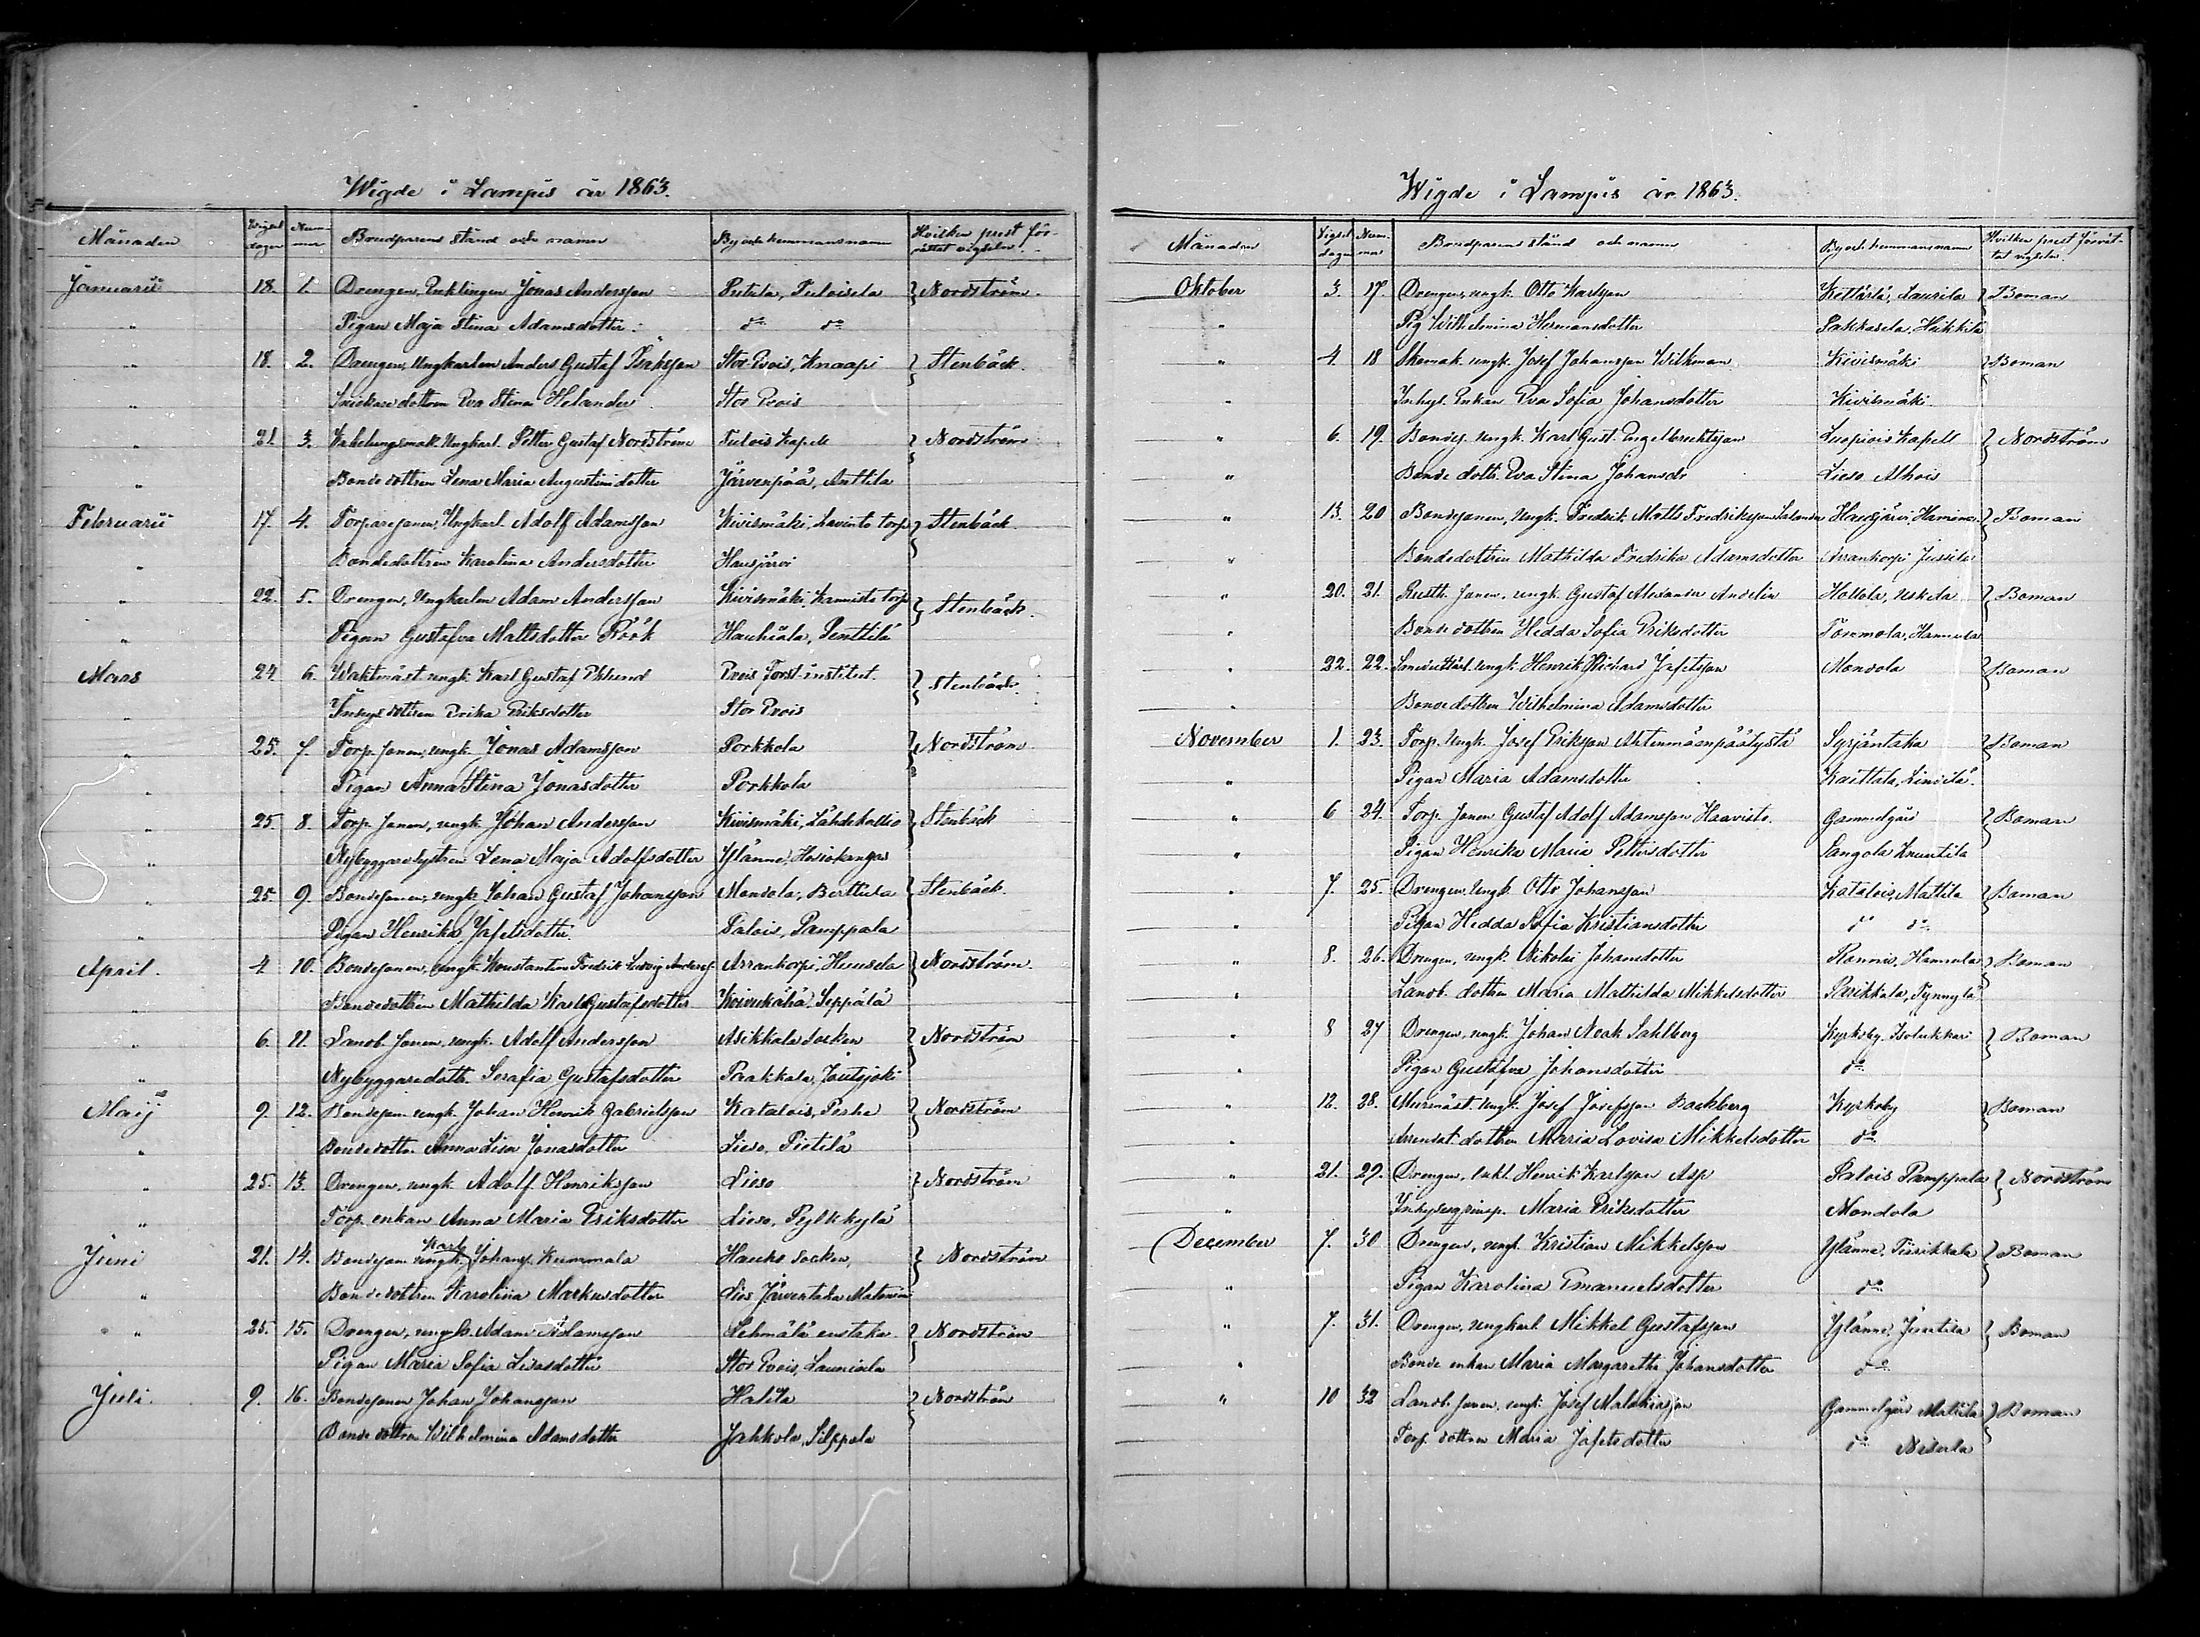 Wigde i Lampis år 1863.
Månaden Vigseldagen Nummer Brudparens stånd och namn By och hemmansnamn Hvilken prest förrättat vigseln.
Januarii 18. 1. Drengen, Enklingen Jonas Andersson Putula, Tuloisela } Nordström.
" Pigan Maja Stina Adamsdotter do do
" 18. 2. Drengen, Ungkarlen Anders Gustaf Eriksson Stor Evois, Knaapi } Stenbäck.
" dottren Eva Stina Helander Stor Evois
" 21. 3. Ungkarl. Petter Gustaf Nordström Tulois Kapell } Nordström
" Bondedottren Lena Maria Augustinidotter Järvenpää, Anttila
Februarii 17. 4. Torparesonen, Ungkarl. Adolf Adamsson Kivismäki, torp } Stenbäck.
" Bondedottren Karolina Andersdotter Hausjärvi
" 22. 5. Drengen, Ungkarlen Adam Andersson Kivismäki, torp } Stenbäck.
" Pigan Gustafva Mattsdotter Röök Hauhiala, Penttilä
Mars 24 6. Waktmäst. ungk. Karl Gustaf Eklund Evois Forst-institut. } Stenbäck
" Inhys dottren Erika Eriksdotter Stor Evois
" 25. 7. Torp. sonen, ungk. Jonas Adamsson Porkkola } Nordström
" Pigan Anna Stina Jonasdotter Porkkola
" 25. 8. Torp. sonen, ungk. Johan Andersson Kivismäki, Lähdekallio } Stenbäck
" Lena Maja Adolfsdotter Ylänne, Hosiokangas
" 25. 9. Bondesonen, ungk. Johan Gustaf Johansson Mondola, Berttula } Stenbäck.
" Pigan Henrika Jafetsdotter. Palois, Pamppala
April. 4 10. Bondesonen, ungk. Konstantin Fredrik Ludvig Anderss. Arrankorpi, Huusela } Nordström.
" Bondedottren Mathilda Karl Gustafsdotter Koivukähä, Seppälä
" 6. 11. Landb. sonen, ungk. Adolf Andersson Asikkala Socken } Nordström
" Nybyggaredottr. Serafia Gustafsdotter Paakkola, Joutsjoki
Maij 9 12. Bondeson. ungk. Johan Henrik Gabrielsson Katalois, Pesha } Nordström
" Bondedottr. Anna Lisa Jonasdotter Lieso, Pietilä
" 25. 13. Drengen, ungk. Adolf Henriksson Lieso } Nordström
" Torp. enkan Anna Maria Eriksdotter Lieso, Pylkkylä
Juni 21. 14. Bondeson ungk. Karl Johanss. Kummala Hauho Socken, } Nordström
" Bondedottren Karolina Markusdotter Järventaka
" 25. 15. Drengen, ungk. Adam Adamsson } Nordström
" Pigan Maria Sofia Stor Evois, Launiala
Juli. 9. 16. Bondesonen Johan Johansson Halila } Nordström
Bondedottren Wilhelmina Adamsdotter Jahkola, Silppala
Wigde i Lampis år 1863.
Månaden Vigseldagen Nummer Brudparens stånd och namn By och hemmansnamn Hvilken prest förrättat vigseln
Oktober 3. 17. Drengen, ungk. Otto Karlsson Kettärlä, Laurila } Boman
" Pig. Wilhelmina Hermansdotter Pakkasela, Heikkilä
" 4. 18 Skomak. ungk. Josef Johansson Wilkman Kivismäki } Boman
" Inhys. Enkan Eva Sofia Johansdotter Kivismäki
" 6. 19. Bondes. ungk. Karl Gust. Engelbrechtsson Luopiois Kapell } Nordström
" Bonde dottr. Eva Stina Johansdr Lieso, Alhois
" 13. 20 Bondesonen, ungk. Fredrik Matts Fredriksson Salander Hausjärvi, } Boman
" Bondedottren Mathilda Fredrika Adamsdotter Arrankorpi, Jussila
" 20. 21. Rustth. sonen, ungk. Gustaf Alexander Andelin Hollola, Uskila } Boman
" Bondedottren Hedda Sofia Eriksdotter Tömmola, Hannula
" 22. 22. ungk. Henrik Richard Jafetsson Mondola } Boman
" Bondedottren Wilhelmina Adamsdotter
November 1. 23. Torp. Ungk. Josef Eriksson Syrjäntaka } Boman
" Pigan Maria Adamsdotter Kaittala,
" 6 24. Torp. sonen Gustaf Adolf Adamsson Haavisto. Gammelgård } Boman
" Pigan Henrika Maria Pettersdotter Sangola Knuutila
" 7. 25. Drengen, ungk. Otto Johansson Katalois, Mattila } Boman
" Pigan Hedda Sofia Kristiansdotter do do
" 8. 26. Drengen, ungk. Nikolai Johansdotter Ronnis, Hannula } Boman
" Landb. dottren Maria Mathilda Mikkelsdotter Parikkala, Pynnylä
" 8 27 Drengen, ungk. Johan Noak Sahlberg Kyrkoby, Isolukkari } Boman
" Pigan Gustafva Johansdotter do
" 12. 28. Murmäst. ungk. Josef Josefsson Backberg Kyrkoby } Boman
" Arrendat. dottren Maria Lovisa Mikkelsdotter do
" 21. 29. Drengen, enkl. Henrik Karlsson Asp Palois Pamppala } Nordström
" Maria Eriksdotter Mondola
December 7. 30 Drengen, ungk. Kristian Mikkelsson Ylänne, Piirikkala } Boman
" Pigan Karolina Emanuelsdotter do
" 7. 31. Drengen, ungkarl Mikkel Gustafsson Ylänne, Juntila } Boman
" Bonde enkan Maria Margaretha Johansdotter do
" 10 32 Landb. sonen, ungk. Josef Malakiasson Gammelgård Mattila } Boman
Torp. dottren Maria Jafetsdotter do